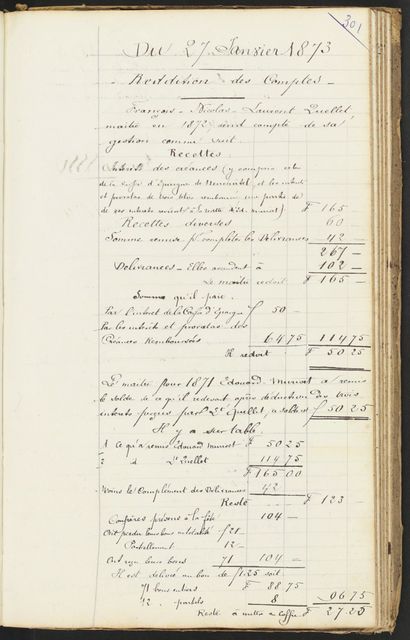 301
Du 27 Janvier 1873
Reddition des Comptes
François-Nicolas-Laurent Quellet
maître en 1872 rend compte de sa
gestion comme suit.
Recettes
Intérêts des créances (y compris celui
de la Caisse d'Epargne de Neuchâtel, et les intérêts
et proratas de trois titres remboursés, une partie de
de ces intérêts revient à la recette d'Ed. Munsat) F 165
Recettes diverses 60
Somme remise p. compléter les Délivrances 42 —
267 —
Délivrances - Elles ascendent à 102 —
Le maître redoit F 165 —
Somme qu'il paie.
Par l'intérêt de la Caisse d'Epargne f 50 —
Par les intérêts et proratas des
Créances Remboursées 64 75 114 75
Il redoit F 50 25
Le maître pour 1871 Edouard Munsat a remis
le solde de ce qu'il redevait, après déduction des trois
intérêts perçus par Lt Quellet, a soldé f 50 25
Il y a sur table.
1 Ce qu'a remis Edouard Munsat F 50 25
2 d Lt Quellet 114 75
F 165 00
Moins le Complément des Délivrances 42
Reste F 123 —
Confrères présens à la fête 104 —
Ont perdu leurs bons en totalité f 21 —
Partiellement 12 —
Ont reçu leurs bons 71 104 —
Il est délivré un bon de f 1.25 soit
71 bons entiers F 88 75
12 partiels 8 96 75
Reste à mettre en Coffre F 27 25